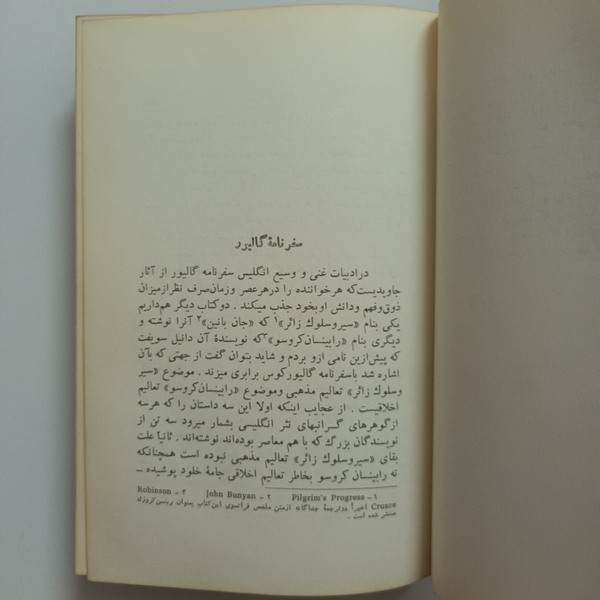 سفرنامهٔ گالیور
درادبیات غنی و وسیع انگلیس سفرنامه گالیور از آثار
جاویدیست‌که هرخواننده را درهرعصر وزمان‌صرف نظرازمیزان
ذوق‌وفهم ودانش اوبخود جذب میکند . دوکتاب دیگر هم‌داریم
یکی بنام «سیروسلوك زائر»۱ که «جان بانین»۲ آنرا نوشته و
دیگری بنام «رابینسان‌کروسو»۳که نویسندهٔ آن دانیل سویفت
که پیش‌ازین نامی ازو بردم و شاید بتوان گفت از جهتی که بآن
اشاره شد باسفرنامه گالیورکوس برابری میزند . موضوع «سیر
وسلوك زائر» تعالیم مذهبی وموضوع «رابینسان‌کروسو» تعالیم
اخلاقیست . از عجایب اینکه اولا این سه داستان را که هرسه
ازگوهرهای گرانبهای نثر انگلیسی بشمار میرود سه تن از
نویسندگان بزرگ که با هم معاصر بوده‌اند نوشته‌اند . ثانیاً علت
بقای «سیروسلوك زائر» تعالیم مذهبی نبوده است همچنانکه
نه رابینسان کروسو بخاطر تعالیم اخلاقی جامهٔ خلود پوشیده ــ
۱ - Pilgrim's Progress ۲ - John Bunyan ۳ - Robinson
Crusoe اخیراً دوترجمهٔ جداگانه ازمتن ملخص فرانسوی این‌کتاب بعنوان ربنسن‌کروزئه
منتشر شده است .